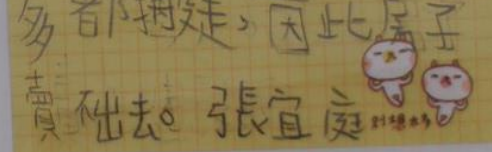 多都拖延，因此房子
賣础去。張宜庭